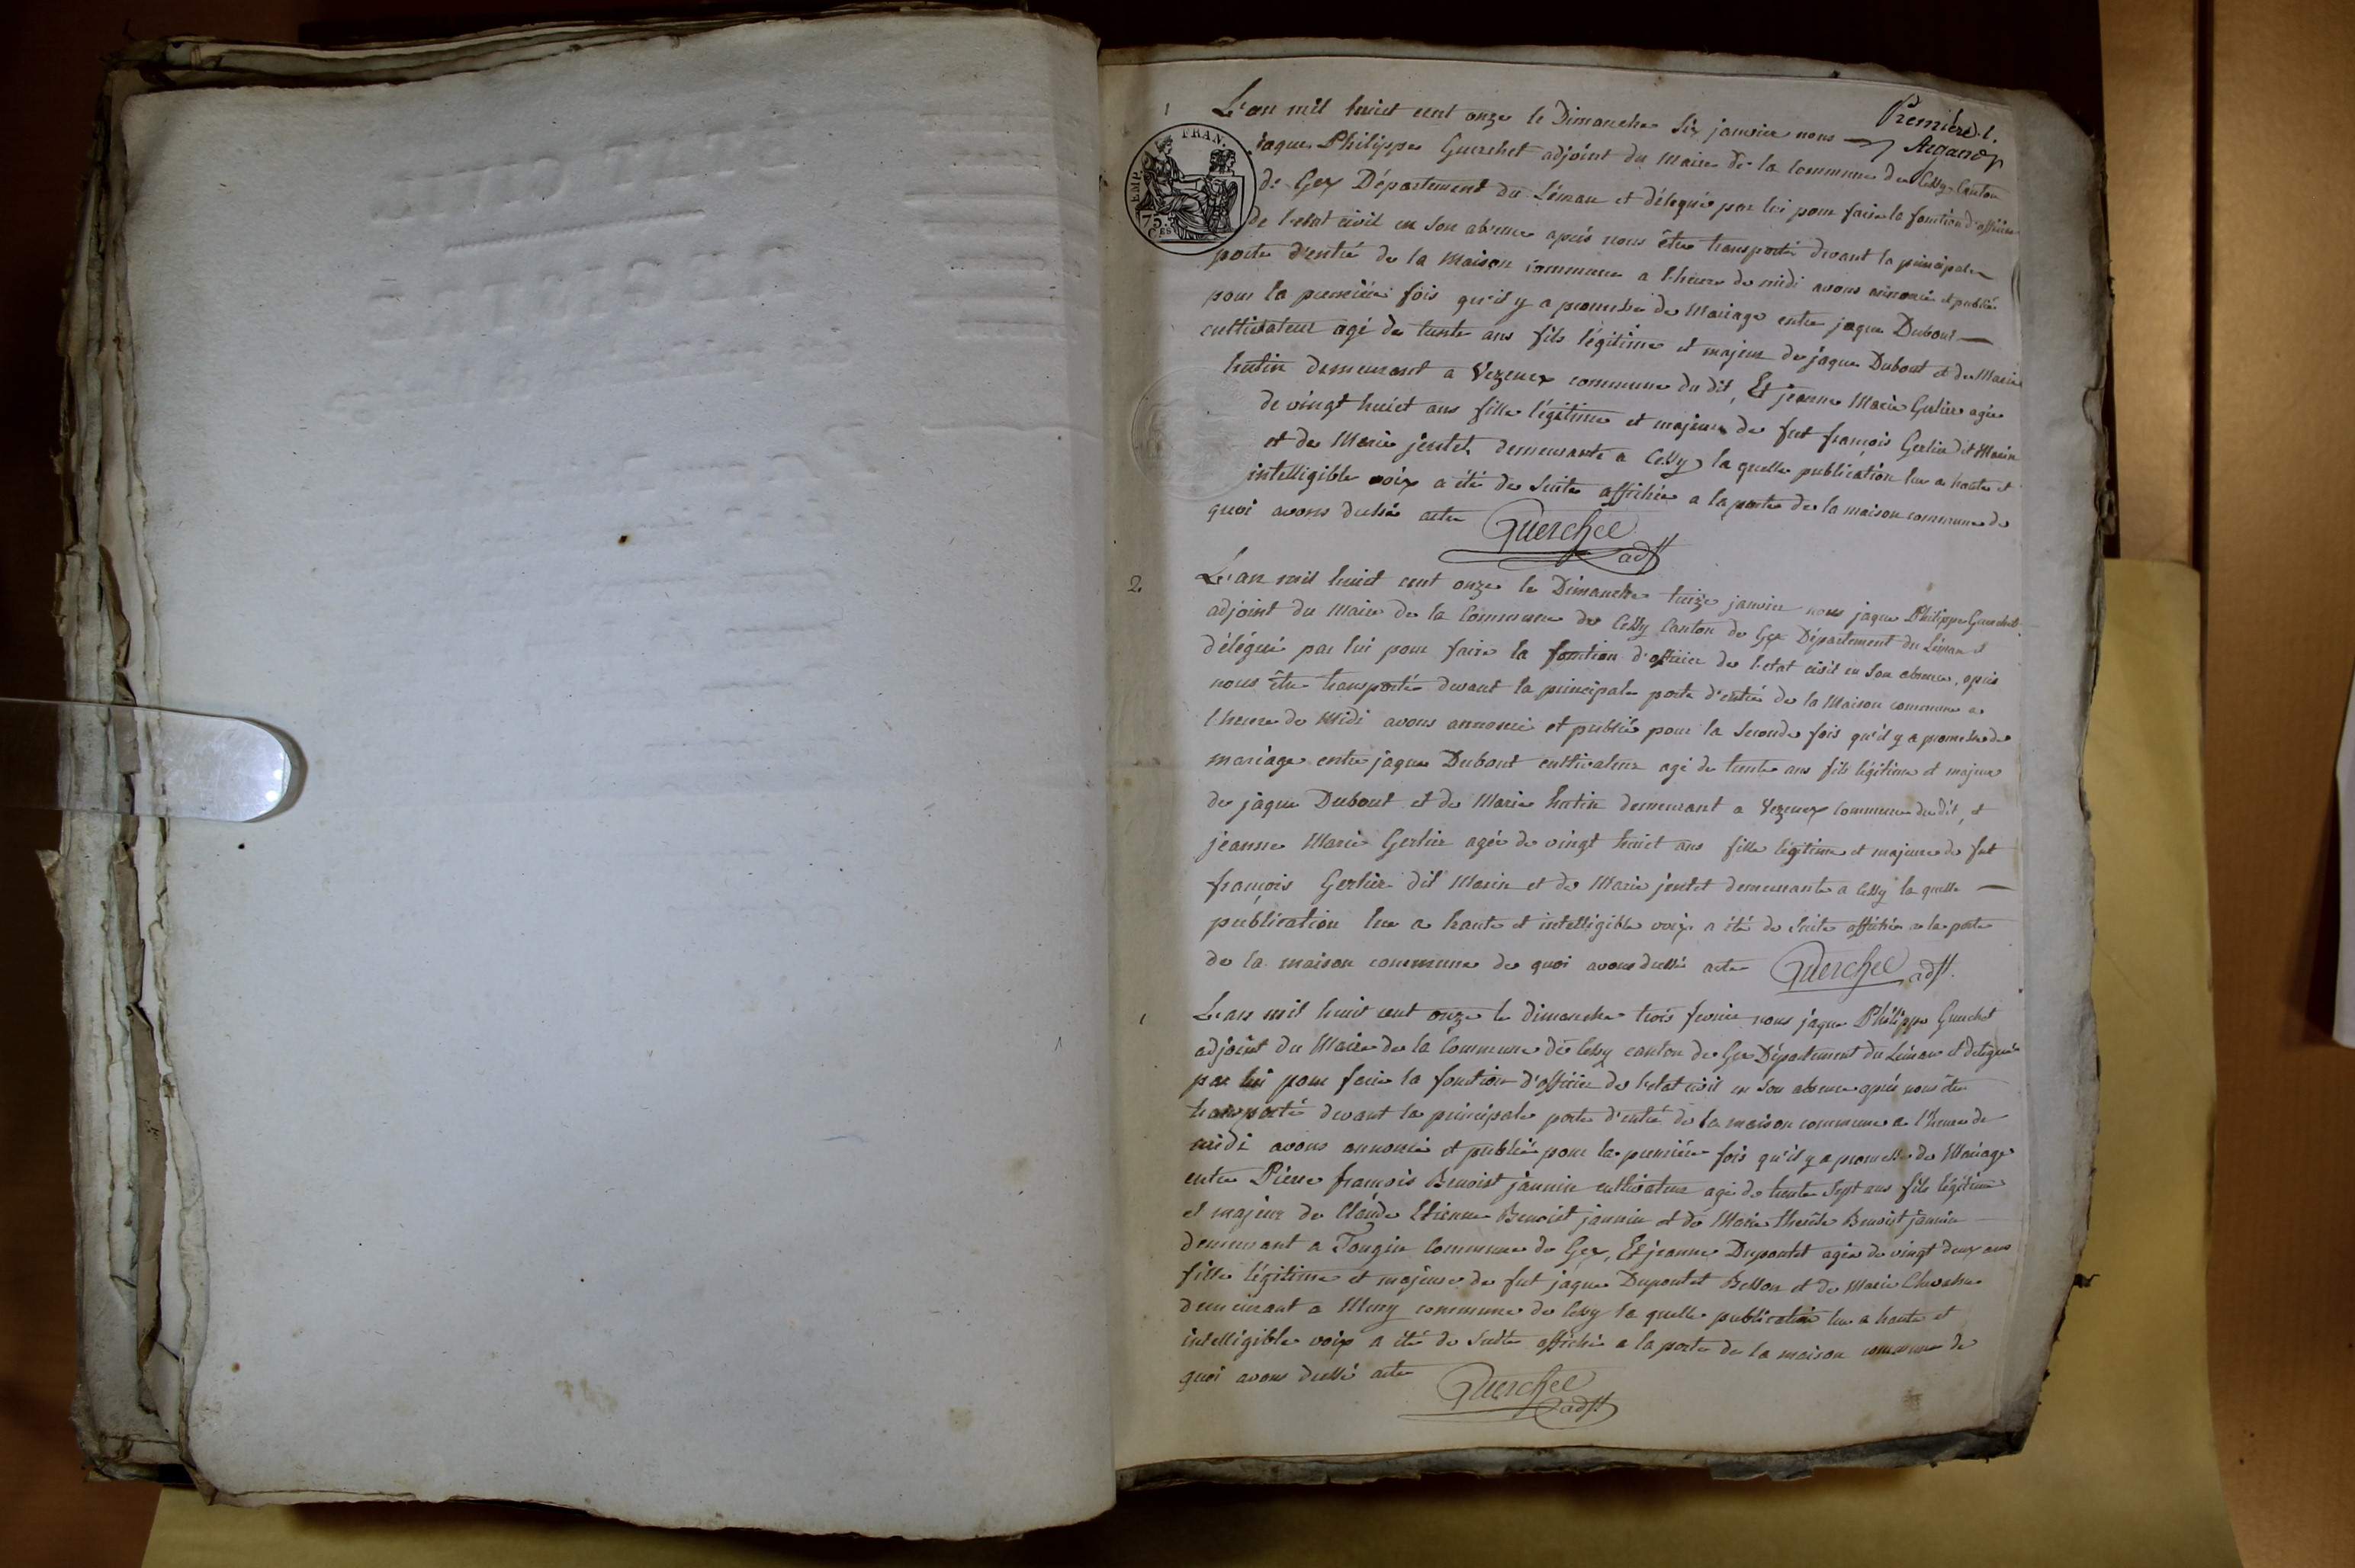 Première f.
Argand
1
L'an mil huict cent onze le Dimanche Six janvier nous
jaque Philippe Guerchet adjoint du Maire de la Commune de Cessy Canton
de Gex Département du Léman et délégué par lui pour faire la fonction d'officier
de l'etat civil en Son absence après nous être transporté devant la principale
porte d'entré de la Maison commune a l'heure de midi avons annoncé et publié
pour la premiére fois qu'il y a promesse de Mariage entre jaque Dubout
cultivateur agé de trente ans fils légitime et majeur de jaque Dubout et de Marie
hutin demeurant a Vezenex commune du dit, Et jeanne Marie Gerlier agée
de vingt huict ans fille légitime et majeure de fut françois Gerlier dit Marin
et de Marie jentet demeurante a Cessy, la quelle publication lue a haute et
intelligible voix a été de Suite affichée a la porte de la maison commune de
quoi avons dressé acte Guerchet
adjt
EMP. FRAN.
75. CES
2
L'an mil huict cent onze le Dimanche treize janvier nous jaque Philippe Guerchet
adjoint du Maire de la Commune de Cessy Canton de Gex Département du Léman et
délégué par lui pour faire la fonction d'officier de l'etat civil en Son absence, après
nous être transporté devant la principale porte d'entré de la Maison commune a
l'heure de Midi avons annoncé et publié pour la Seconde fois qu'il y a promesse de
mariage entre jaque Dubout cultivateur agé de trente ans fils légitime et majeur
de jaque Dubout et de Marie hutin demeurant a Vezenex Commune du dit, et
jeanne Marie Gerlier agée de vingt huict ans fille légitime et majeure de fut
françois Gerlier dit Marin et de Marie jentet demeurante a Cessy la quelle
publication lue a haute et intelligible voix a été de Suite affichée a la porte
de la maison commune de quoi avons dressé acte Guerchet adjt.
1
L'an mil huit cent onze le dimanche trois fevrier nous jaque Philippe Guerchet
adjoint du Maire de la Commune de Cessy canton de Gex Département du Léman et delegué
par lui pour faire la fonction d'officier de l'etat civil en Son absence après nous être
transporté devant la principale porte d'entré de la maison commune a l'heure de
midi avons annoncé et publié pour la premiére fois qu'il y a promesse de Mariage
entre Pierre françois Benoist jannin cultivateur agé de trente Sept ans fils légitime
et majeur de Claude Etienne Benoist jannin et de Marie therése Benoist jannin
demeurant a Tougin Commune de Gex, Et jeanne Dupontet agée de vingt deux ans
fille légitime et majeure de fut jaque Dupontet Besson et de Marie
demeurant a commune de Cessy la quelle publication lue a haute et
intelligible voix a été de Suite affichée a la porte de la maison commune de
quoi avons dressé acte Guerchet
adjt